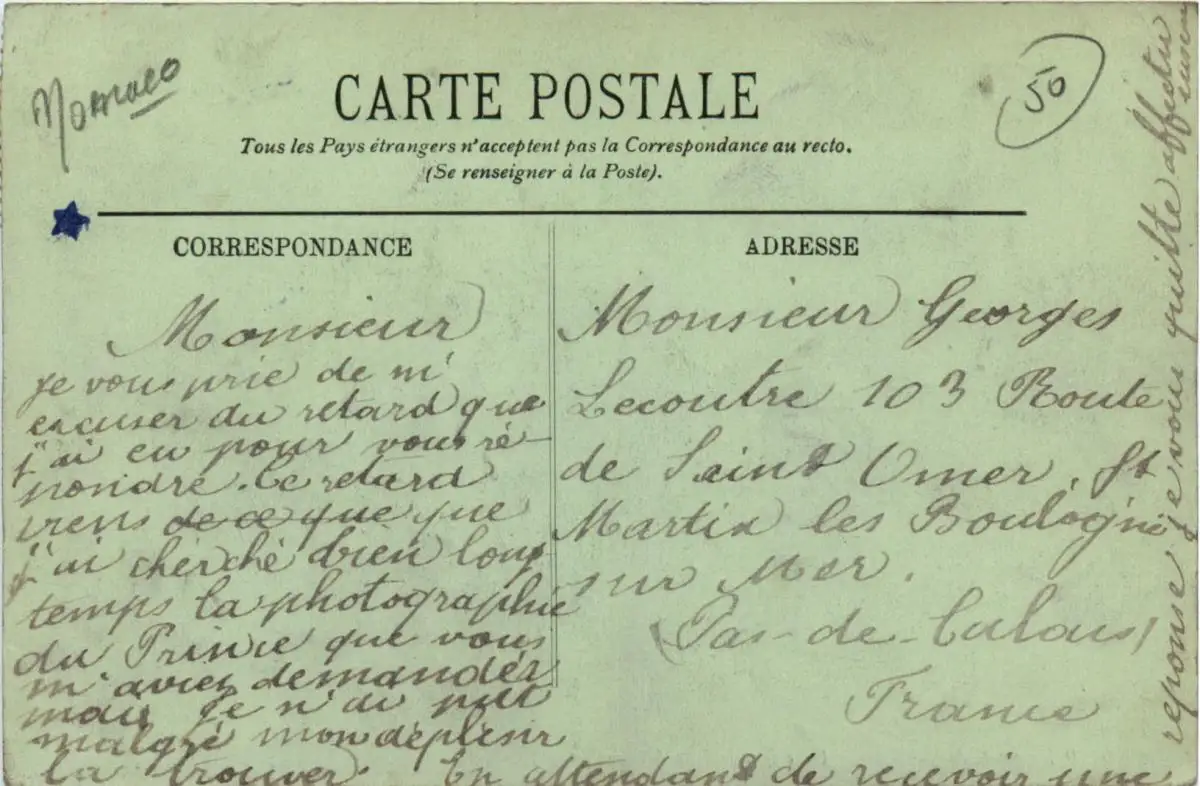 Monaco
50
CARTE POSTALE
Tous les Pays étrangers n'acceptent pas la Correspondance au recto.
(Se renseigner à la Poste).
CORRESPONDANCE
Monsieur
je vous prie de m'
excuser du retard que
j'ai eu pour vous ré-
pondre. Ce retard
viens de ce que que
j'ai cherché bien long
temps la photographie
du Prince que vous
m'aviez demandér
mais je n'ai put
malgré mon déplesir
la trouver. En attendant de recevoir une
reponse je vous quitte affectu
ADRESSE
Monsieur Georges
Lecoutre 103 Route
de Saint Omer, St
Martin les Boulogne
sur Mer.
(Pas-de-Calais)
France